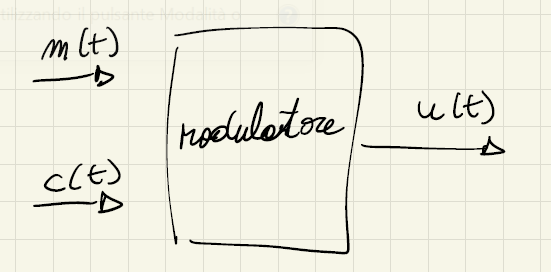 tilizzando il pulsante Modalità o
m(t)
modulatore
u(t)
c(t)